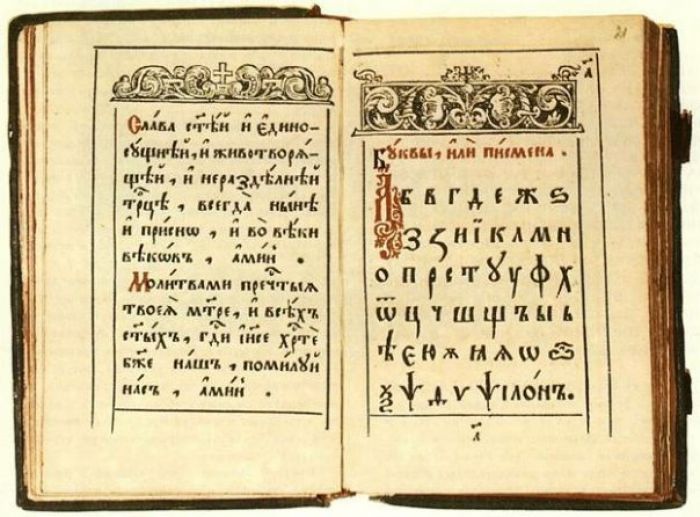 Сла́ва ст҃ѣ́й и҆ є҆дино-
сꙋ́щнѣй, и҆ животворѧ́-
щей, и҆ нераздѣ́лнѣй
трⷪ҇цѣ, всегда̀ ны́нѣ
и҆ при́снѡ, и҆ во вѣ́ки
вѣкѡ́въ, а҆ми́нь.
Моли́твами пречⷭ҇тыѧ
твоеѧ̀ мт҃ре, и҆ всѣ́хъ
ст҃ы́хъ, гдⷭ҇и і҆и҃се хрⷭ҇тѐ
бж҃е на́шъ, поми́лꙋй
на́съ, а҆ми́нь.
21
Бꙋ́квы, и҆лѝ пи́смена.
А Б В Г Д Е Ж Ѕ
З Ꙁ И Ї К Л М Н
О П Р С Т Ꙋ У Ф Х
Ѿ Ц Ч Ш Щ Ъ Ы Ь
Ѣ Є Ю Ѫ Н Ꙗ Ѧ Ѡ
Ѯ Ѱ Д Ѵ Ѱїло́нъ.